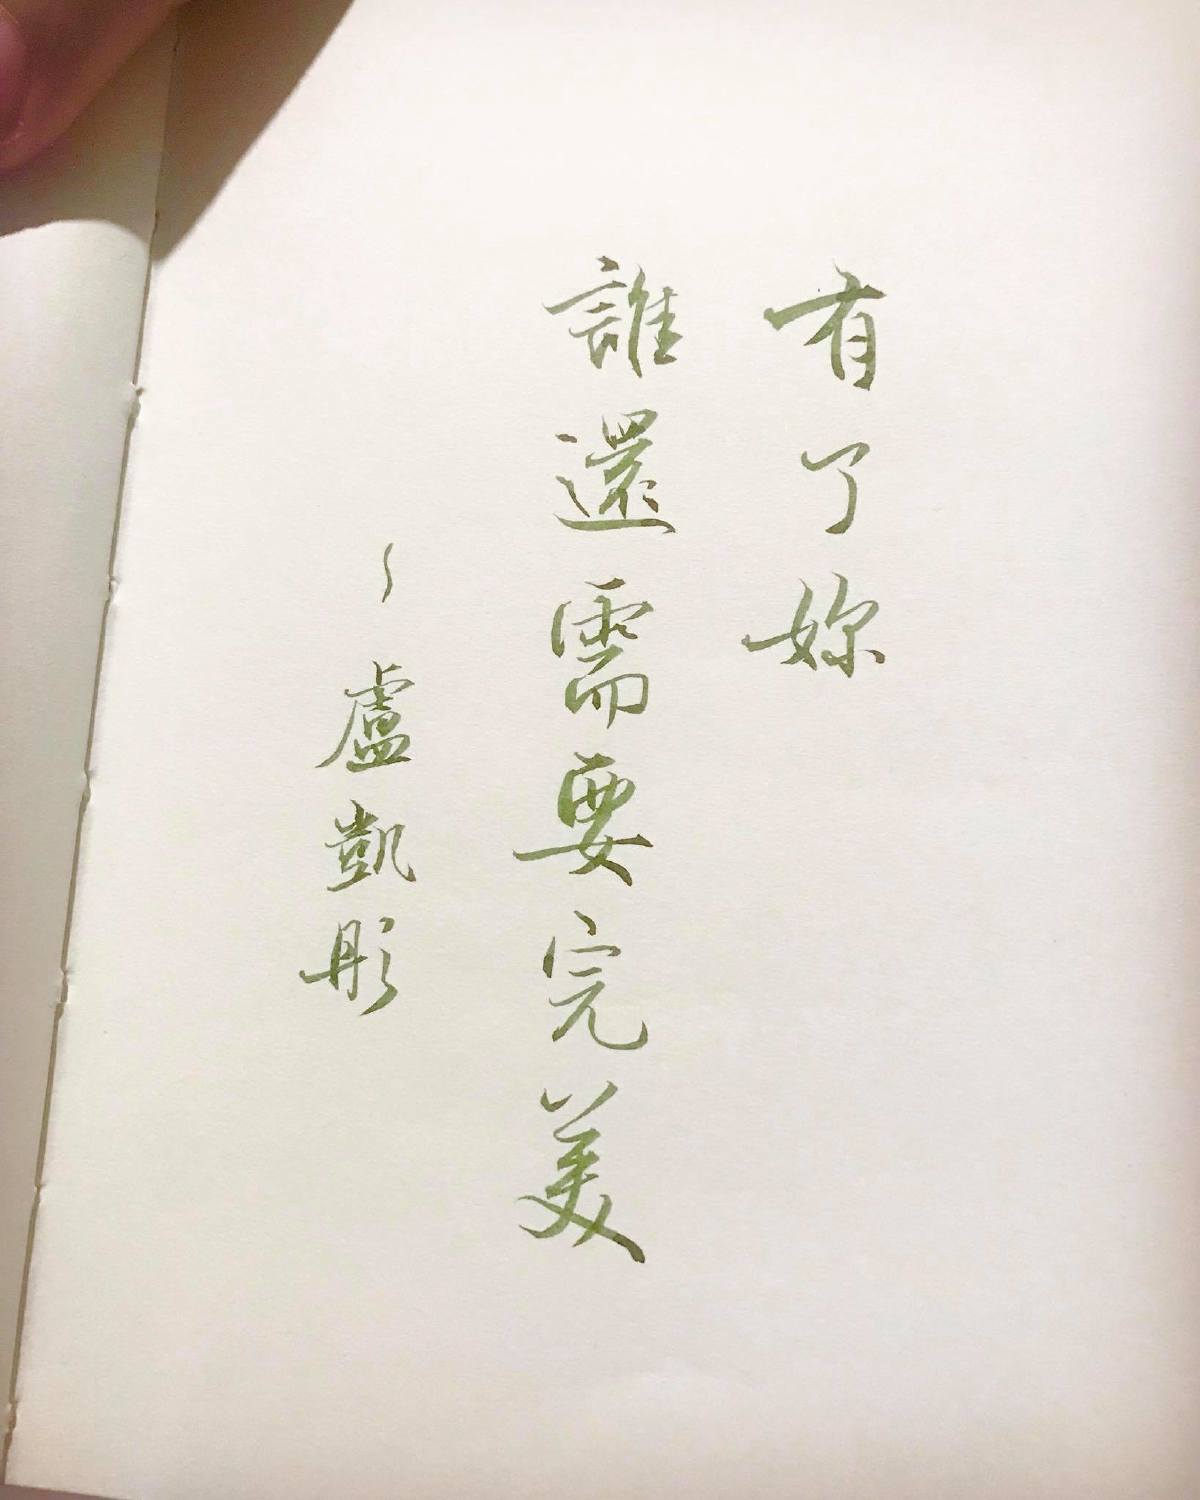 有了妳
誰還需要完美
~盧凱彤